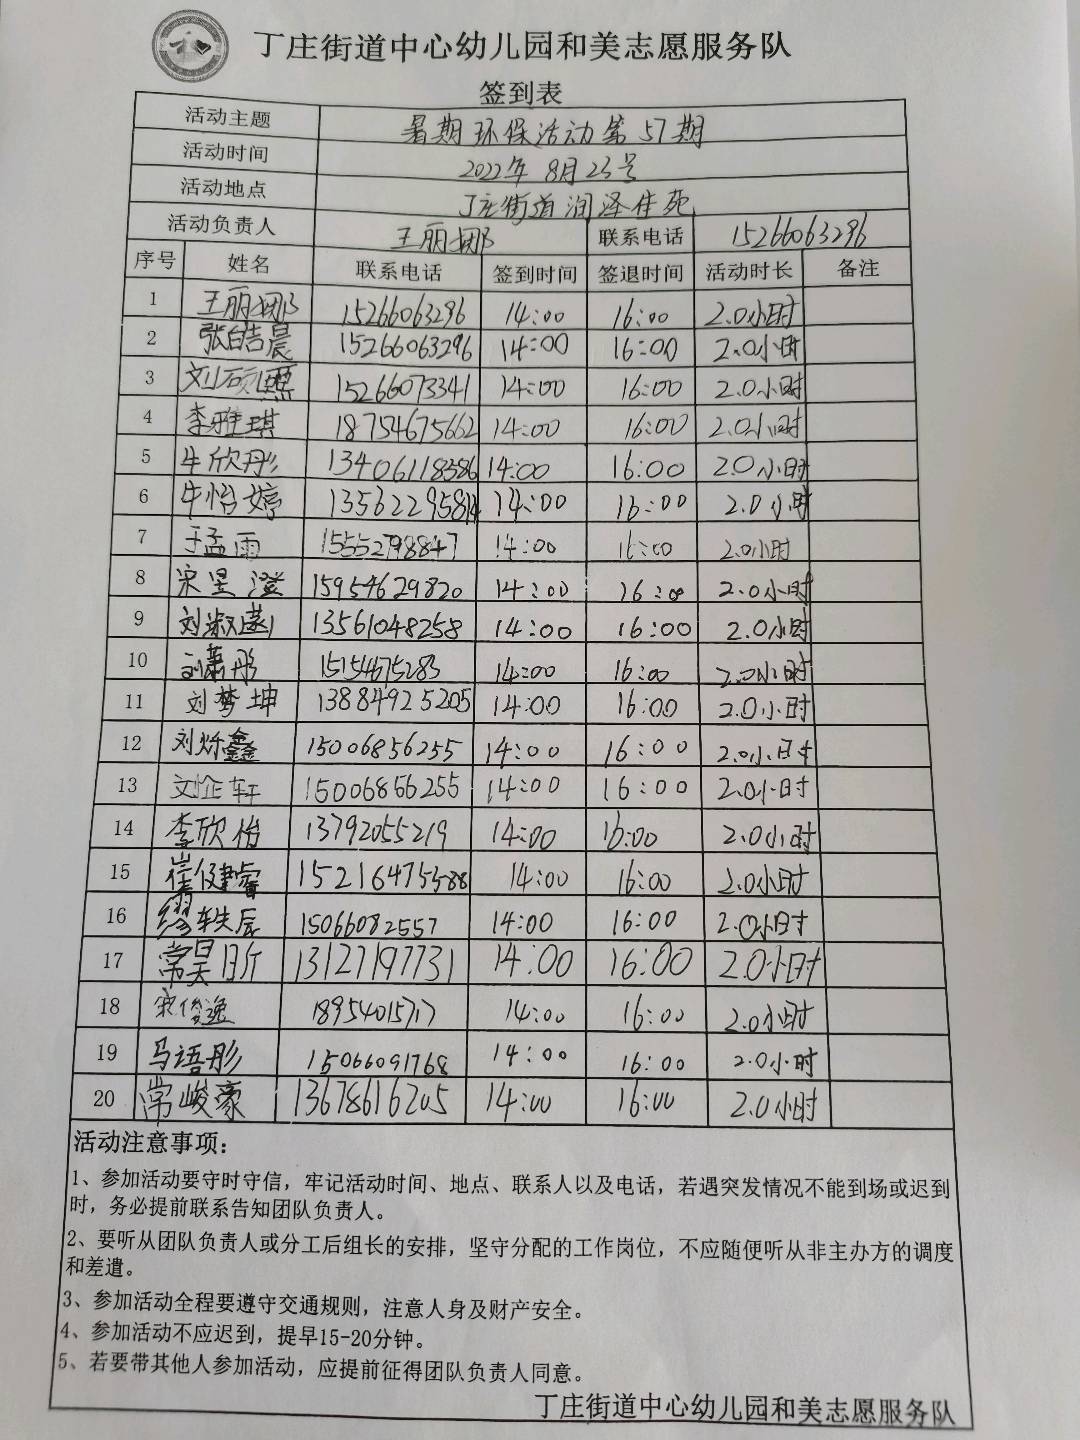 丁庄街道中心幼儿园和美志愿服务队
签到表
活动主题 暑期环保活动第57期
活动时间 2022年8月23号
活动地点 丁庄街道润泽佳苑
活动负责人 王丽娜 联系电话 15266063296
序号 姓名 联系电话 签到时间 签退时间 活动时长 备注
1 王丽娜 15266063296 14:00 16:00 2.0小时
2 张皓晨 15266063296 14:00 16:00 2.0小时
3 刘硕熙 15266073341 14:00 16:00 2.0小时
4 李雅琪 18754675662 14:00 16:00 2.0小时
5 牛欣彤 13406118386 14:00 16:00 2.0小时
6 牛怡婷 13562295814 14:00 16:00 2.0小时
7 于孟雨 15552798847 14:00 16:00 2.0小时
8 宋昱澄 15954629820 14:00 16:00 2.0小时
9 刘淑 13561048258 14:00 16:00 2.0小时
10 刘萧彤 15154675283 14:00 16:00 2.0小时
11 刘梦坤 13884925205 14:00 16:00 2.0小时
12 刘烁鑫 15006856255 14:00 16:00 2.0小时
13 轩 15006856255 14:00 16:00 2.0小时
14 李欣怡 13792055219 14:00 16:00 2.0小时
15 崔健睿 15216475588 14:00 16:00 2.0小时
16 缪轶辰 15066082557 14:00 16:00 2.0小时
17 常昊 13127197731 14:00 16:00 2.0小时
18 俊逸 18954015717 14:00 16:00 2.0小时
19 马语彤 15066091768 14:00 16:00 2.0小时
20 常峻豪 13678616205 14:00 16:00 2.0小时
活动注意事项：
1、参加活动要守时守信，牢记活动时间、地点、联系人以及电话，若遇突发情况不能到场或迟到
时，务必提前联系告知团队负责人。
2、要听从团队负责人或分工后组长的安排，坚守分配的工作岗位，不应随便听从非主办方的调度
和差遣。
3、参加活动全程要遵守交通规则，注意人身及财产安全。
4、参加活动不应迟到，提早15-20分钟。
5、若要带其他人参加活动，应提前征得团队负责人同意。
丁庄街道中心幼儿园和美志愿服务队